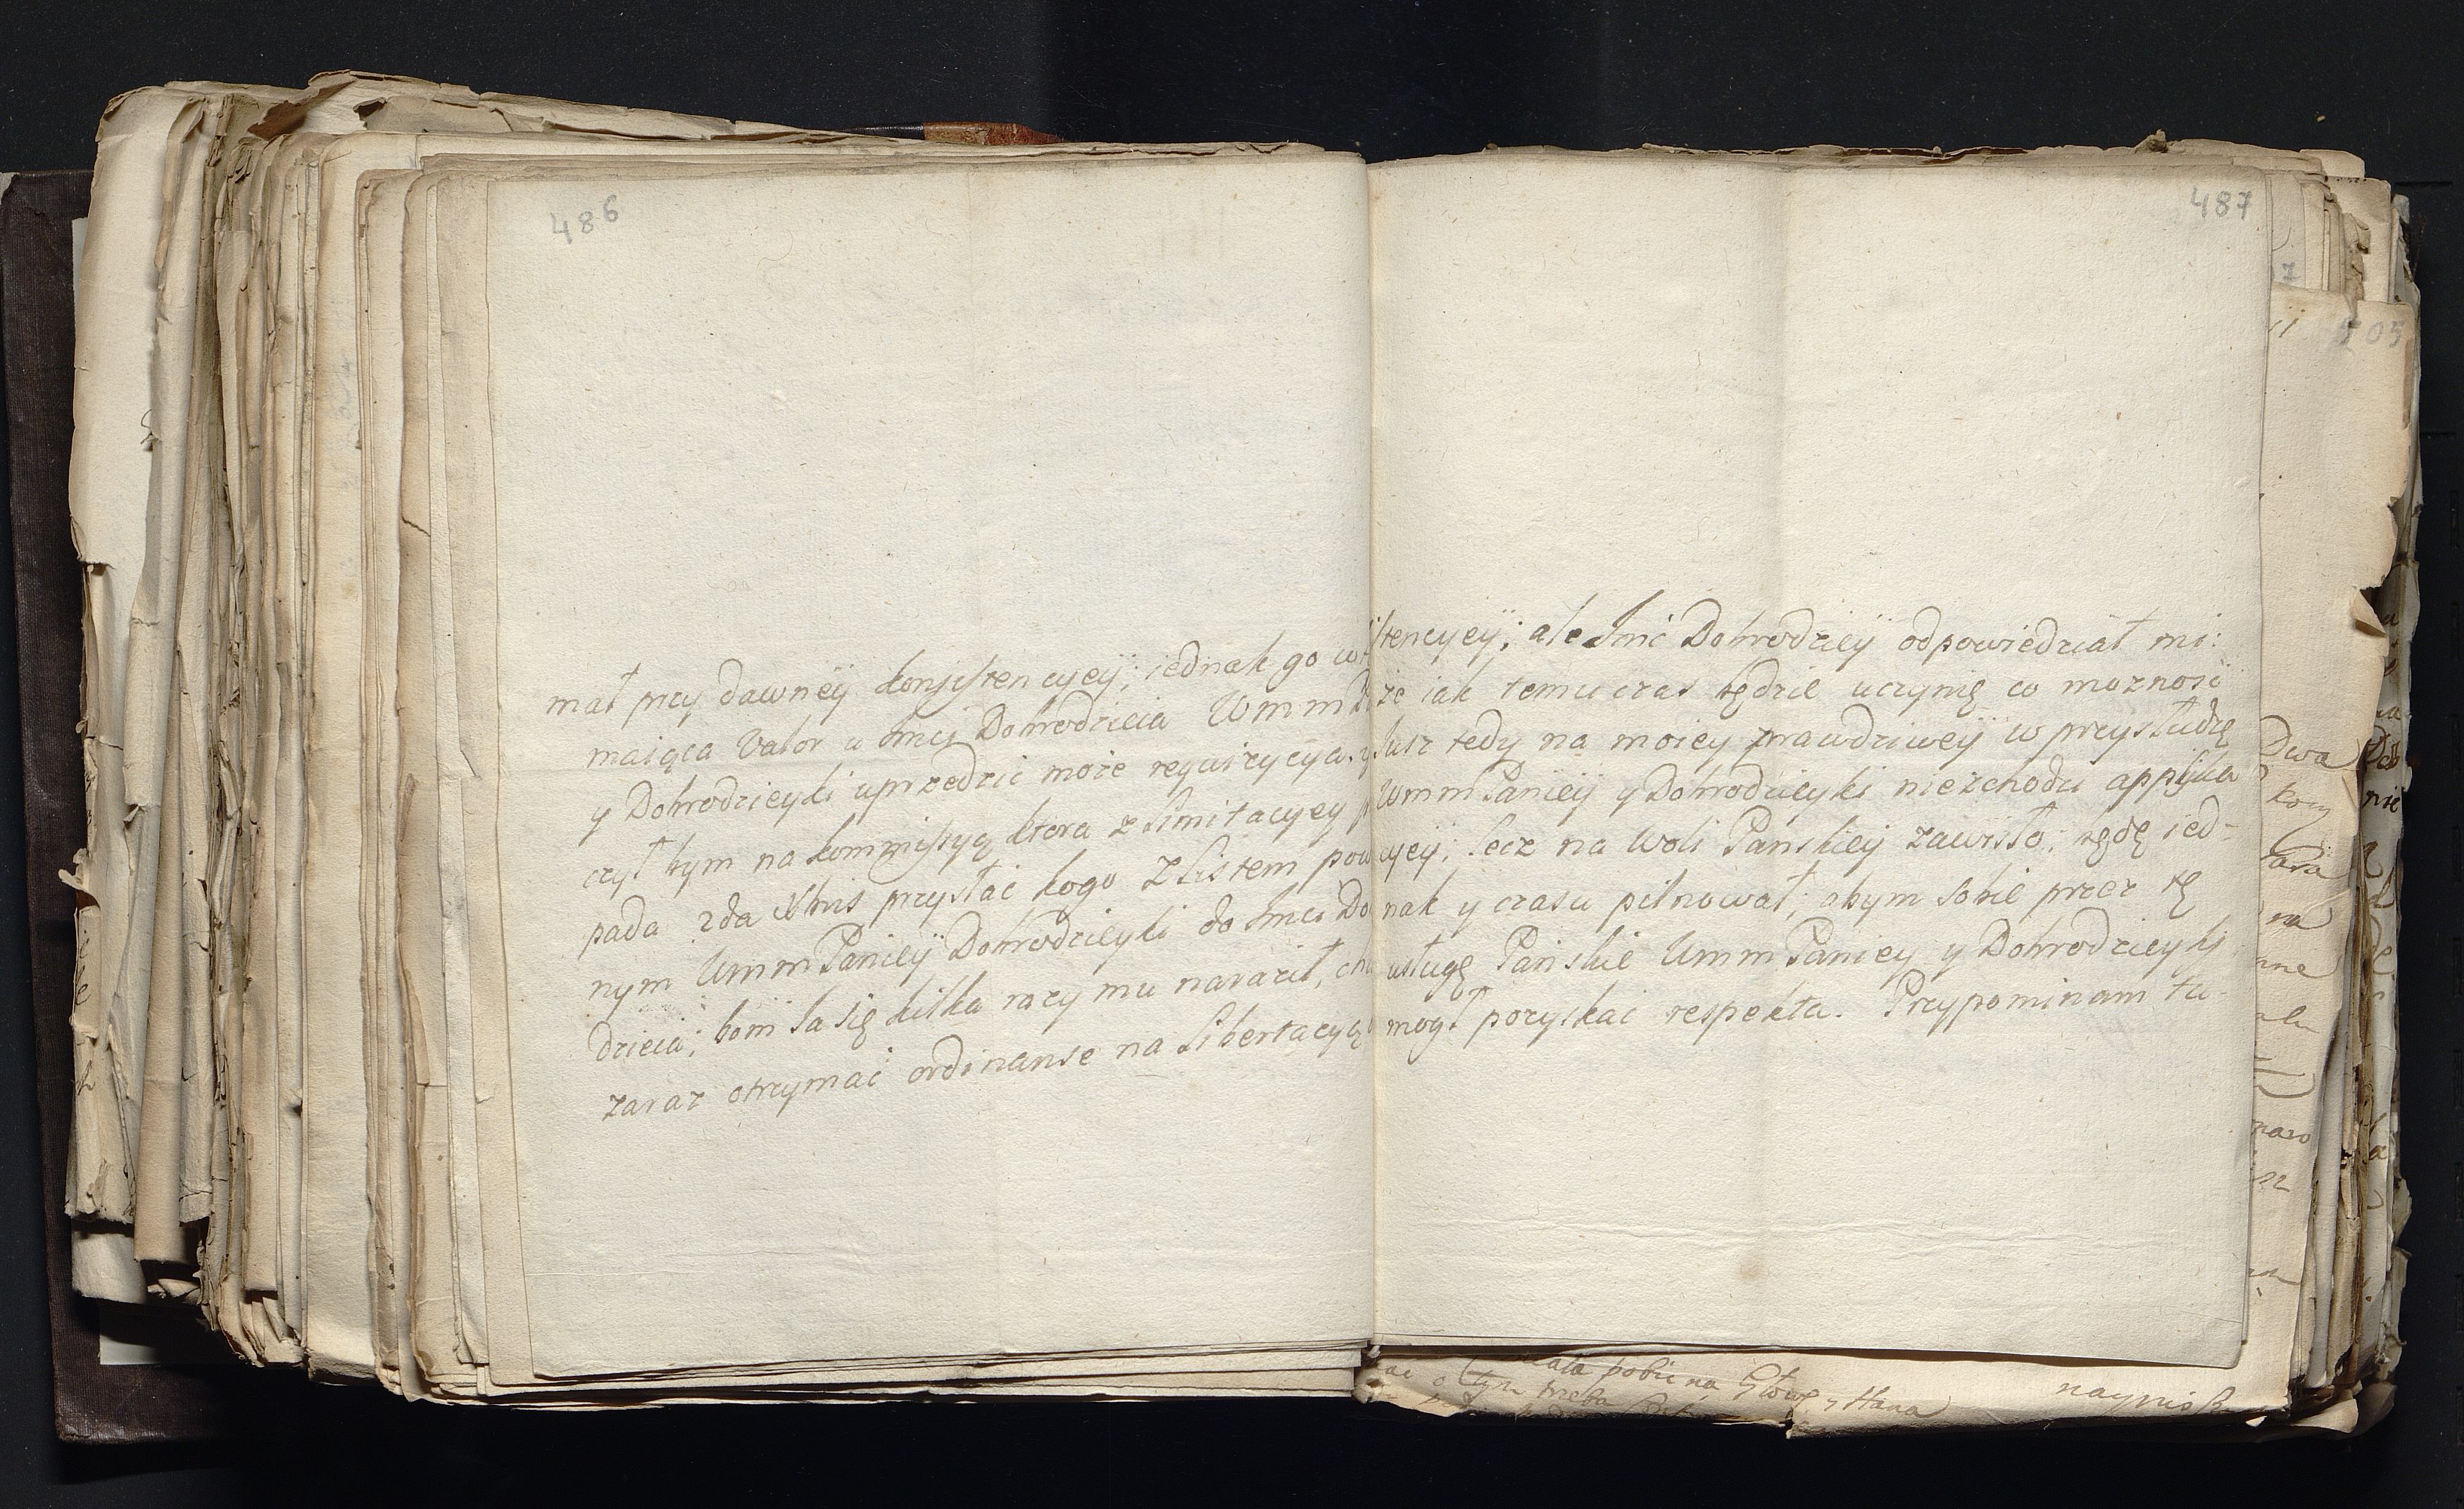 486
mał przy dawnёy konsystencyeÿ; iednak go w
maiąca Valor u Jmci Dobrodzieia Wmm
y Dobrodzieyki uprzedzić może requizycya.
czył bym na kommissyą ktora z limitacyey
pada zda mnis przysłać kogo z Listem pow
nym Wmm Panieÿ Dobrodzieyki do Jmci Do
dzieia; bom Ja się kilka razy mu naraził,
zaraz otrzymać ordinanse na Libertacyą
487
stencyeÿ; ale Jmć Dobrodzieÿ odpowiedział mi:
że iak temu czas będzie uczynię co moznosć
Jusz tedy na moieÿ prawdziweÿ w przysłudzę
Wmm Panieÿ y Dobrodzieyki niezchodzi applika
cyeÿ; lecz na Woli Panskieÿ zawisło; będę ied-
nak y czasu pilnował; abym sobie przez tę
usługę Pańskie Wmm Paniey y Dobrodzieyki
mogł pozyskać respekta. Przypominam tu-
505
Dwa
na
pobic na Głowę y Hana
o tym trzeba